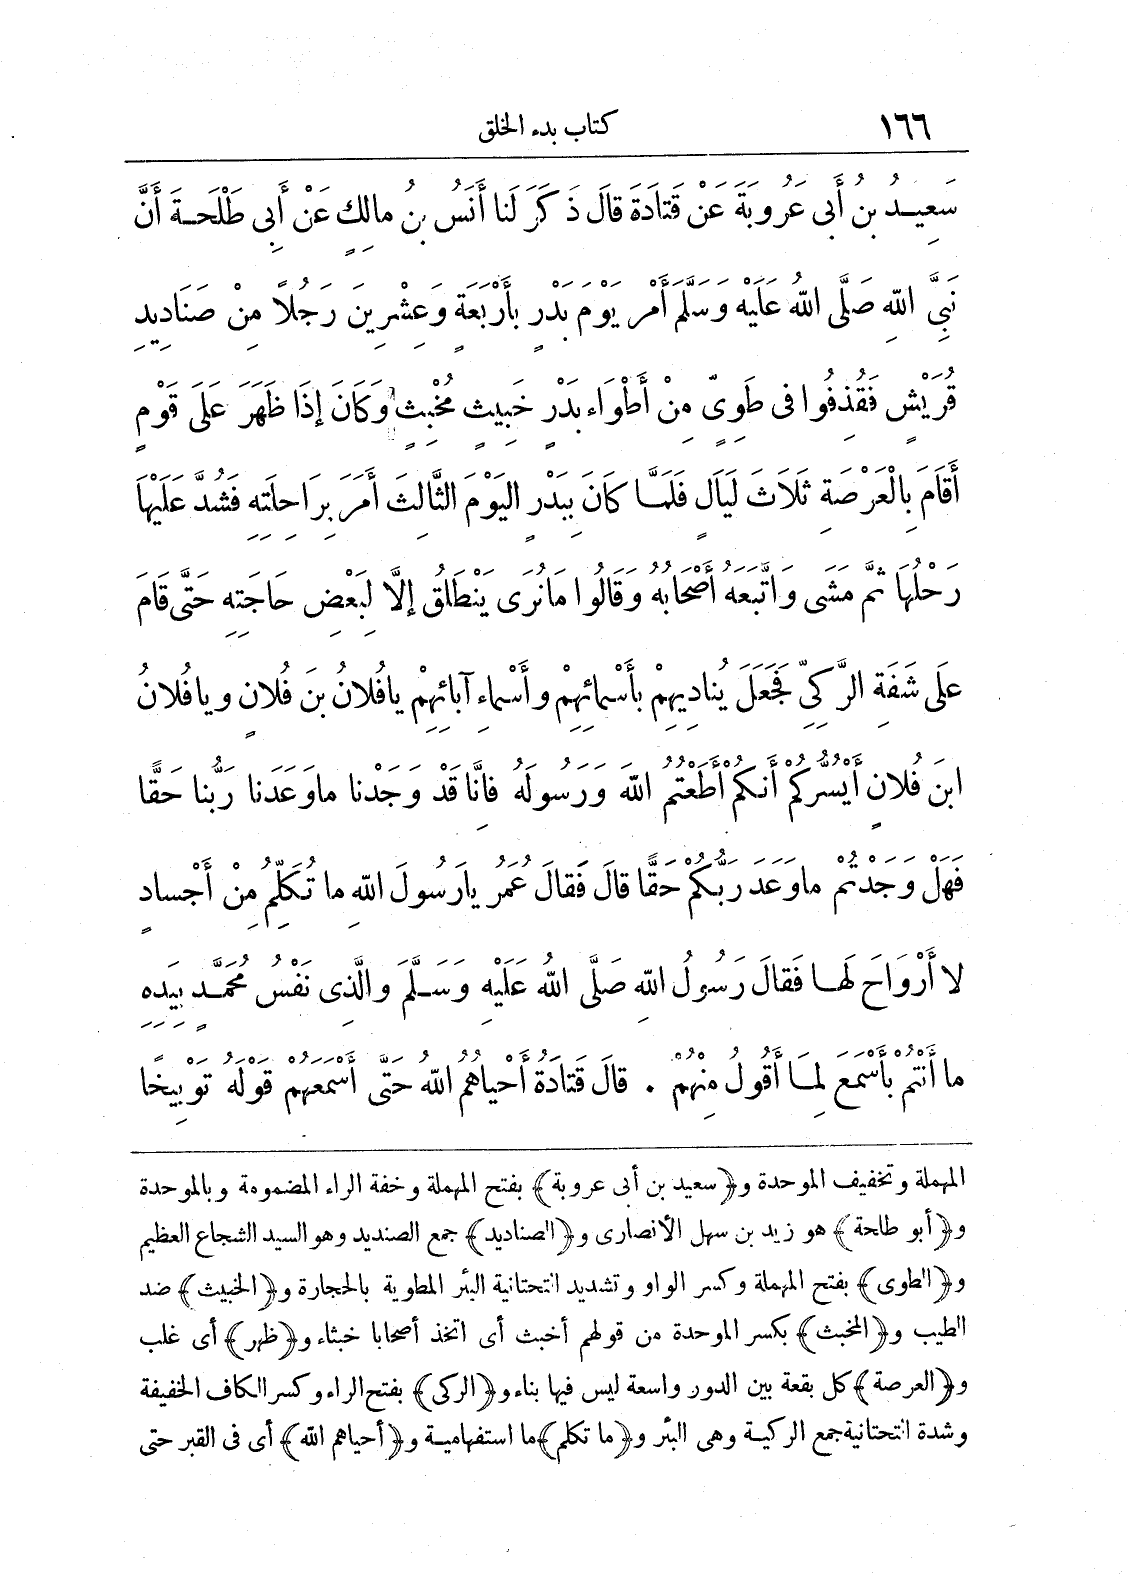 ١٦٦ كتاب بدء الخلق
سَعِيدُ بنُ أَبى عَرُوبَةَ عَنْ قَتَادَةَ قالَ ذَكَرَ لَنا أَنَسُ بنُ مالِكٍ عَنْ أَبِى طَلْحَةَ أَنَّ
نَبِىَّ اللهِ صَلَّى اللهُ عَلَيْهِ وَسَلَّمَ أَمَرَ يَوْمَ بَدْرٍ بأَرْبَعَةٍ وَعِشْرِينَ رَجُلاً مِنْ صَنَادِيدِ
قُرَيْشٍ فَقُذِفُوا فى طَوِىٍّ مِنْ أَطْوَاءِ بَدْرٍ خَبِيثٍ مُخْبِثٍ وَكَانَ إذَا ظَهَرَ عَلَى قَوْمٍ
أَقَامَ بِالْعَرْصَةِ ثَلَاثَ لَيَالٍ فَلَمَّا كَانَ بِبَدْرٍ اليَوْمَ الثَّالِثَ أَمَرَ بِرَاحِلَتِهِ فَشُدَّ عَلَيْهَا
رَحْلُهَا ثُمَّ مَشَى وَاتَّبَعَهُ أَصْحَابُهُ وَقَالُوا مَانُرَى يَنْطَلِقُ إلَّا لِبَعْضِ حَاجَتِهِ حَتَّى قَامَ
عَلَى شَفَةِ الرَّكِىِّ فَجَعَلَ يُنادِيهِمْ بأَسْمائِهِمْ وأَسْماءِ آبائِهِمْ يافُلانُ بنَ فُلانٍ ويافُلانُ
ابنَ فُلانٍ أَيَسُرُّكُمْ أَنَّكُمْ أَطَعْتُمُ اللهَ وَرَسُولَهُ فإنَّا قَدْ وَجَدْنا ماوَعَدَنا رَبُّنا حَقًّا
فَهَلْ وَجَدْتُمْ ماوَعَدَ رَبُّكُمْ حَقًّا قالَ فَقالَ عُمَرُ يارَسُولَ اللهِ ما تُكَلِّمُ مِنْ أَجْسادٍ
لا أَرْوَاحَ لَها فَقالَ رَسُولُ اللهِ صَلَّى اللهُ عَلَيْهِ وَسَلَّمَ والَّذِى نَفْسُ مُحَمَّدٍ بِيَدِهِ
ما أَنْتُمْ بأَسْمَعَ لِمَا أَقُولُ مِنْهُمْ . قالَ قَتَادَةُ أَحْياهُمُ اللهُ حَتَّى أَسْمَعَهُمْ قَوْلَهُ تَوْبِيخًا
المهملة وتخفيف الموحدة و﴿سعيد بن أبى عروبة﴾ بفتح المهملة وخفة الراء المضمومة وبالموحدة
و﴿أبو طلحة﴾ هو زيد بن سهل الأنصارى و﴿الصناديد﴾ جمع الصنديد وهو السيد الشجاع العظيم
و﴿الطوى﴾ بفتح المهملة وكسر الواو وتشديد التحتانية البئر المطوية بالحجارة و﴿الخبيث﴾ ضد
الطيب و﴿المخبث﴾ بكسر الموحدة من قولهم أخبث أى اتخذ أصحابا خبثاء و﴿ظهر﴾ أى غلب
و﴿العرصة﴾ كل بقعة بين الدور واسعة ليس فيها بناء و﴿الركى﴾ بفتح الراء وكسر الكاف الخفيفة
وشدة التحتانية جمع الركية وهى البئر و﴿ما تكلم﴾ ما استفهامية و﴿أحياهم الله﴾ أى فى القبر حتى